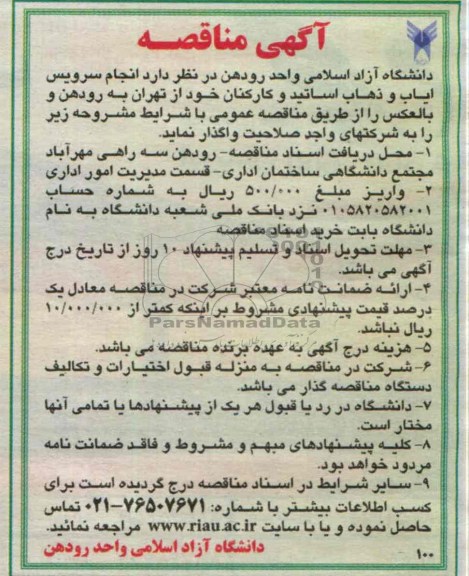 آگهی مناقصه
دانشگاه آزاد اسلامی واحد رودهن در نظر دارد انجام سرویس
ایاب و ذهاب اساتید و کارکنان خود از تهران به رودهن و
بالعکس را از طریق مناقصه عمومی با شرایط مشروحه زیر
را به شرکتهای واجد صلاحیت واگذار نماید.
۱- محل دریافت اسناد مناقصه- رودهن سه راهی مهرآباد
مجتمع دانشگاهی ساختمان اداری- قسمت مدیریت امور اداری
۲- واریز مبلغ ۵۰۰/۰۰۰ ریال به شماره حساب
۰۱۰۵۸۲۰۵۸۲۰۰۱ نزد بانک ملی شعبه دانشگاه به نام
دانشگاه بابت خرید اسناد مناقصه
۳- مهلت تحویل اسناد و تسلیم پیشنهاد ۱۰ روز از تاریخ درج
آگهی می باشد.
۴- ارائه ضمانت نامه معتبر شرکت در مناقصه معادل یک
درصد قیمت پیشنهادی مشروط بر اینکه کمتر از ۱۰/۰۰۰/۰۰۰
ParsNamadData
ریال نباشد.
۵- هزینه درج آگهی به عهده برنده مناقصه می باشد.
۶- شرکت در مناقصه به منزله قبول اختیارات و تکالیف
دستگاه مناقصه گذار می باشد.
۷- دانشگاه در رد یا قبول هر یک از پیشنهادها یا تمامی آنها
مختار است.
۸- کلیه پیشنهادهای مبهم و مشروط و فاقد ضمانت نامه
مردود خواهد بود.
۹- سایر شرایط در اسناد مناقصه درج گردیده است برای
کسب اطلاعات بیشتر با شماره: ۷۶۵۰۷۶۷۱-۰۲۱ تماس
حاصل نموده و یا با سایت www.riau.ac.ir مراجعه نمائید.
دانشگاه آزاد اسلامی واحد رودهن
۱۰۰